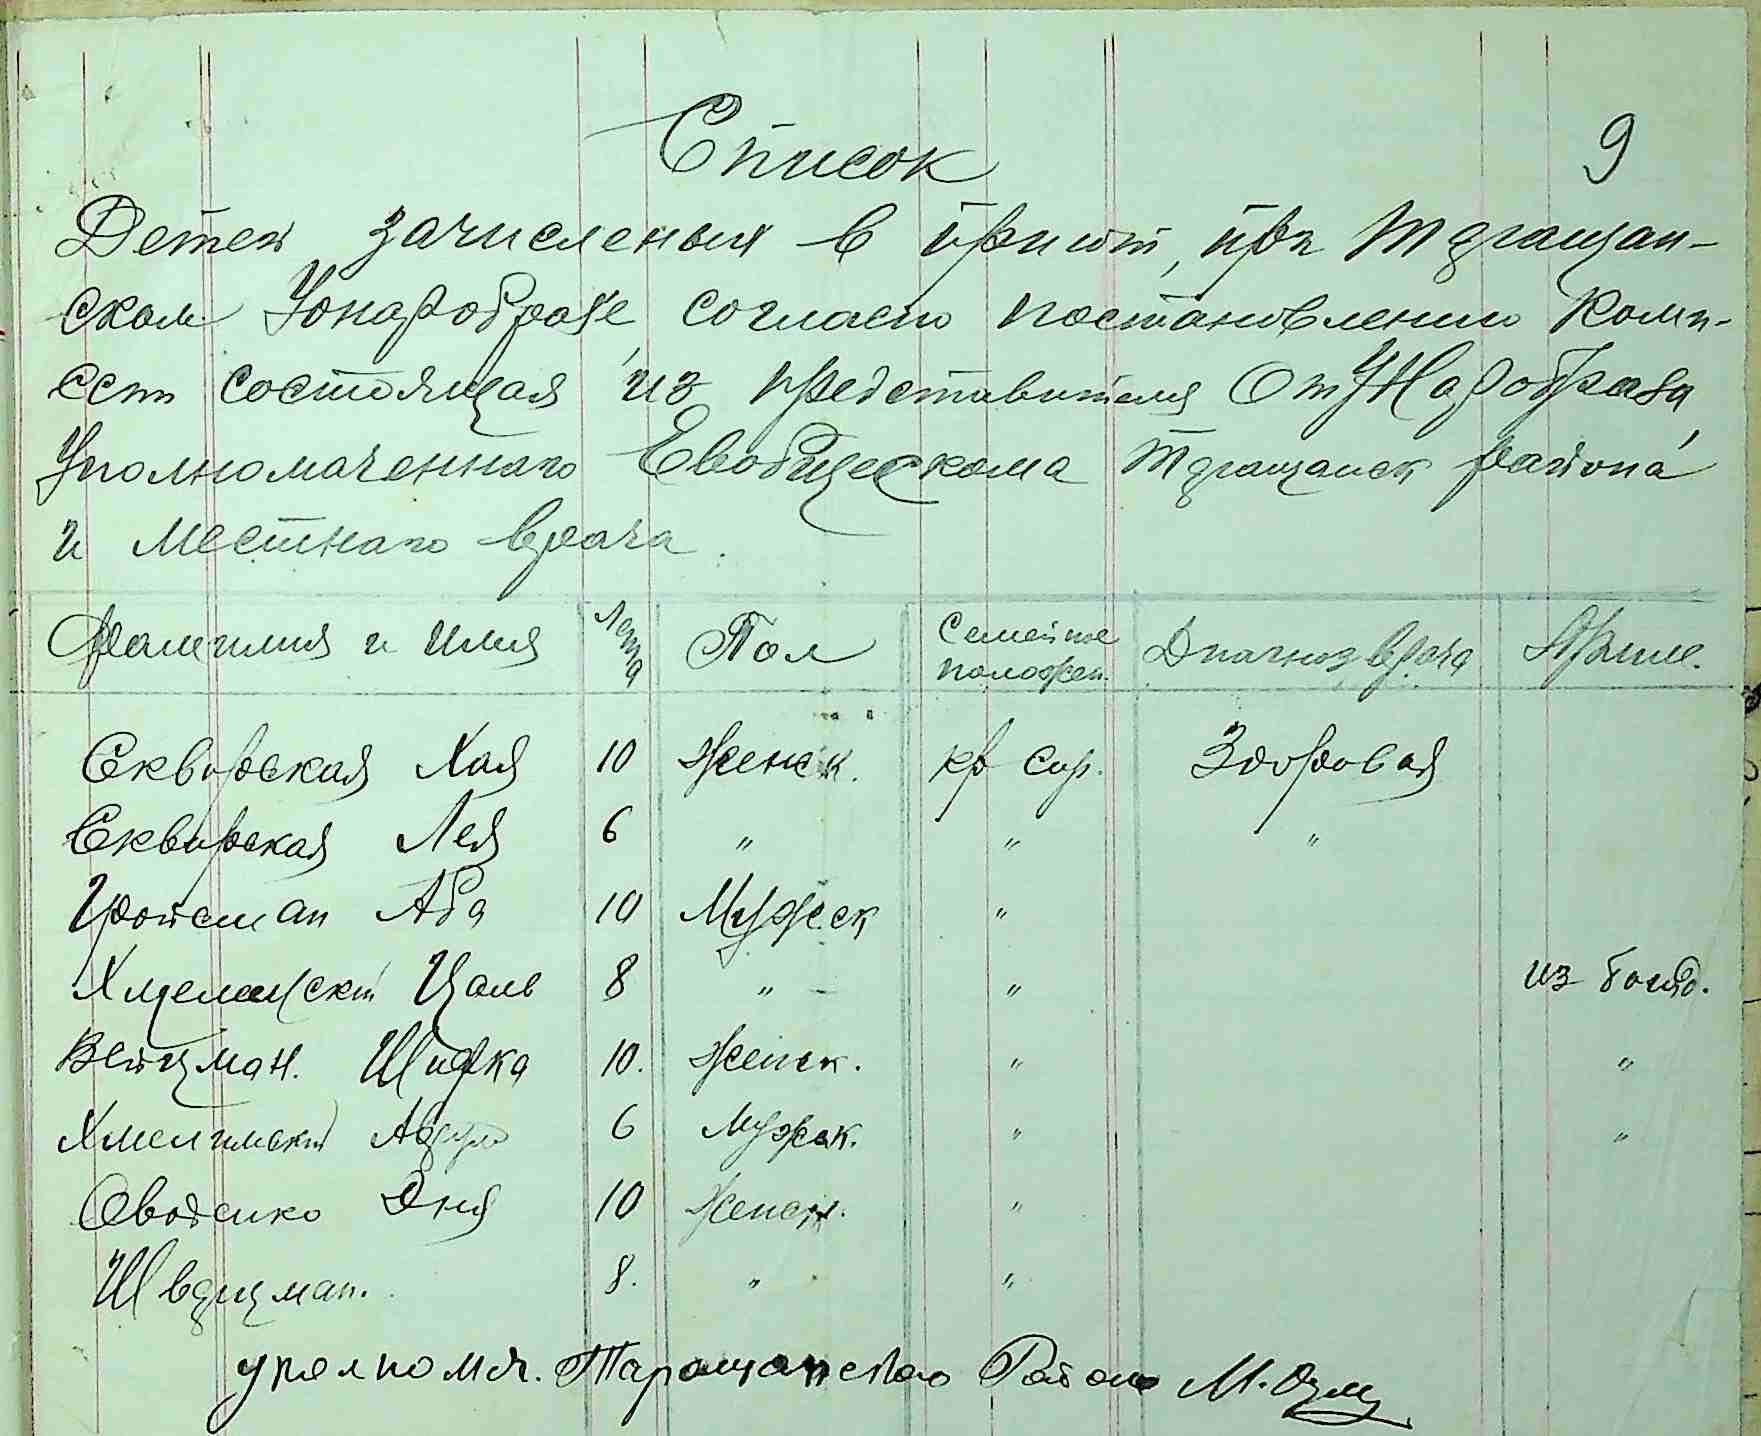 Список
9
Детей зачисленых в приют, при Таращан-
ском Уонаробразе согласно постановлению Коми-
сси состоящая из представителя ОтУНаробраза,
Уполномоченнаго Евобщескома Таращанск района
и местнаго врача.
Фамилия и имя Лета Пол Семейное положен. Диагноз врача Приме.
Сквирская Хая 10 Женск. кр сир. Здоровая
Сквирская Лея 6 " " "
Гройсман Аба 10 Мужск "
8 " - " из богад.
Вейцман. Шифка 10. Женск. " "
6 Мужск. " "
10 Женск. "
Шварцман. 8. " "
уполномоч. Таращанского Района М.